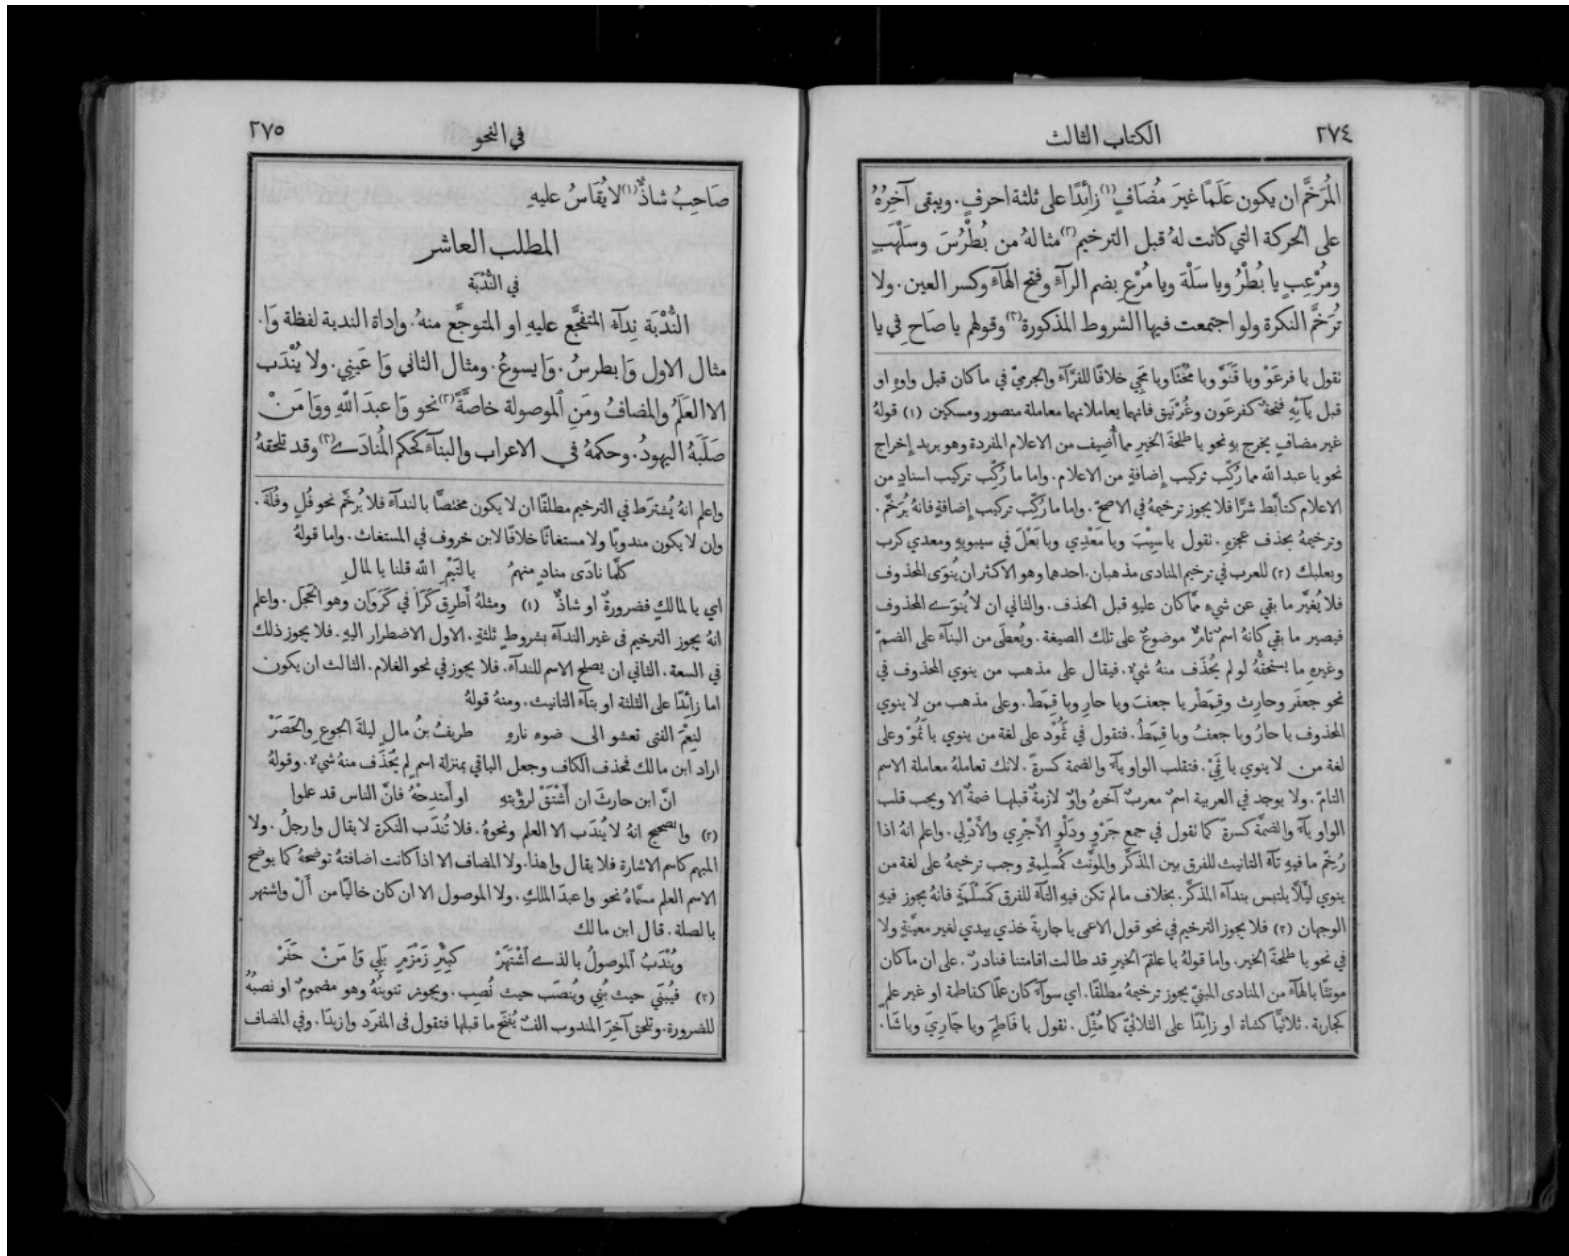 ٢٧٤
الكتاب الثالث
المُرَخَّم ان يكون عَلَمًا غيرَ مُضَافٍ (١) زائِدًا على ثلثة احرفٍ. ويبقى آخِرُهُ
على الحركة التي كانت لهُ قبل الترخيم (٢) مثالهُ من بُطْرُسَ وسَلْهَبٍ
ومُرْعِبٍ يا بُطْرُ ويا سَلْهَ ويا مُرْعِ بضم الرآءِ وفتح الهآءِ وكسر العين. ولا
تُرَخَّم النكرة ولو اجتمعت فيها الشروط المذكورة (٣) وقولهم يا صَاحِ في يا
نقول يا فرعَوْ ويا قَنَوَّ ويا مُخْتَا ويا مَجِي خلافًا للفرَّآءِ والجرميّ في ما كان قبل واوهِ او
قبل يآئِهِ فتحة كفرعَون وغُرْنَيق فانهما يعاملانهما معاملة منصور ومسكين (١) قولهُ
غير مضافٍ يخرج بهِ نحو يا طلحةَ الخيرِ مما أُضِيف من الاعلام المفردة وهو يريد إخراج
نحو يا عبد الله مما رُكِّب تركيب إضافةٍ من الاعلام. واما ما رُكِّب تركيب اسنادٍ من
الاعلام كتأبَّط شرًّا فلا يجوز ترخيمهُ في الاصحّ. واما ما رُكِّب تركيب إضافةٍ فانهُ يُرَخَّم.
وترخيمهُ بحذف عجزهِ. نقول يا سِيبَ ويا مَعْدِي ويا بَعْلَ في سيبويهِ ومعدي كرب
وبعلبك (٢) للعرب في ترخيم المنادى مذهبان. احدهما وهو الاكثر ان يُنوَى المحذوف
فلا يُغيَّر ما بقي عن شيءٍ مما كان عليهِ قبل الحذف. والثاني ان لا يُنوَى المحذوف
فيصير ما بقي كانهُ اسمٌ تامٌّ موضوعٌ على تلك الصيغة. ويُعطَى من البنآءِ على الضمّ
وغيرهِ ما يستحقُّهُ لو لم يُحذَف منهُ شيءٌ. فيقال على مذهب من ينوي المحذوف في
نحو جعفَر وحارِث وقِمَطْر يا جعفَ ويا حارِ ويا قِمَطْ. وعلى مذهب من لا ينوي
المحذوف يا حارُ ويا جعفُ ويا قِمَطُ. فنقول في ثمُوْد على لغة من ينوي يا ثَمُوْ وعلى
لغة من لا ينوي يا ثَمِيْ. فتقلب الواو يآءً والضمة كسرةً. لانك تعاملهُ معاملة الاسم
التامّ. ولا يوجد في العربية اسمٌ معربٌ آخرهُ واوٌ لازمةٌ قبلها ضمةٌ الا ويجب قلب
الواو يآءً والضمَّة كسرةً كما نقول في جمع جَرْوٍ ودَلْوٍ الأَجْرِي والأَدْلِي. واعلم انهُ اذا
رُخِّم ما فيهِ تآءُ التانيث للفرق بين المذكَّر والمونَّث كمُسلِمة وجب ترخيمهُ على لغة من
ينوي ليلَّا يلتبس بندآءِ المذكَّر. بخلاف ما لم تكن فيهِ التآءُ للفرق كمَسْلَمَةَ فانهُ يجوز فيهِ
الوجهان (٣) فلا يجوز الترخيم في نحو قول الاعمى يا جاريةً خذي بيدي لغير معيَّنةٍ ولا
في نحو يا طلحةَ الخير. واما قولهُ يا علقمَ الخيرِ قد طالت اقامتنا فنادرٌ. على ان ما كان
مونثًا بالهآءِ من المنادى المبنيّ يجوز ترخيمهُ مطلقًا. اي سوآءٌ كان علمًا كفاطمة او غير علمٍ
كجارية. ثلاثيًّا كشاة او زائدًا على الثلاثيّ كما مُثِّل. نقول يا فَاطِمَ ويا جَارِيَ ويا شَا.
٢٧٥
في النحو
صَاحِبُ شاذٌّ (١) لا يُقَاسُ عليهِ
المطلب العاشر
في النُّدْبَة
النُّدْبَة نِدآءُ المُتَفَجَّع عليهِ او المتوجَّع منهُ. واداة الندبة لفظة وَا.
مثال الاول وَا بطرسُ. وَا يسوعُ. ومثال الثاني وَا عَينِي. ولا يُنْدَب
الا العَلَمُ والمضافُ ومَنِ ٱلموصولة خاصَّةً (٢) نحو وَا عبدَ اللهِ ووَا مَنْ
صَلَبَهُ اليهودُ. وحكمهُ في الاعراب والبنآءِ كحكم المُنادَى (٣) وقد تلحقهُ
واعلم انهُ يُشترَط في الترخيم مطلقًا ان لا يكون مختصًّا بالندآءِ فلا يُرخَّم نحو فُل وفُلَة.
وان لا يكون مندوبًا ولا مستغاثًا خلافًا لابن خروف في المستغاث. واما قولهُ
كلَّما نادَى منادٍ منهمُ يا لتَيْمِ الله قلنا يا لمالِ
اي يا لمالكٍ فضرورةٌ او شاذٌّ (١) ومثلهُ أَطرِق كَرَا في كَرَوَان وهو الحَجَل. واعلم
انهُ يجوز الترخيم في غير الندآءِ بشروطٍ ثلثةٍ. الاول الاضطرار اليهِ. فلا يجوز ذلك
في السعة. الثاني ان يصلح الاسم للندآءِ. فلا يجوز في نحو الغلام. الثالث ان يكون
اما زائدًا على الثلثة او بتآءِ التانيث. ومنهُ قولهُ
لنِعْمَ الفتى تعشو الى ضوءِ نارهِ طريفُ بنُ مالٍ ليلةَ الجوعِ والخَصَرْ
اراد ابن مالك فحذف الكاف وجعل الباقي بمنزلة اسمٍ لم يُحْذَف منهُ شيءٌ. وقولهُ
انَّ ابن حارثَ ان أَشْتَقْ لرؤْيتهِ او أَمتدِحْهُ فانَّ الناس قد علموا
(٢) والصحيح انهُ لا يُندَب الا العلم ونحوهُ. فلا تُندَب النكرة لا يقال وا رجلُ. ولا
المبهم كاسم الاشارة فلا يقال وا هذا. ولا المضاف الا اذا كانت اضافتهُ توضحهُ كما يوضح
الاسم العلم مسمَّاهُ نحو وا عبدَ الملكِ. ولا الموصول الا ان كان خاليًا من أَلْ واشتهر
بالصلة. قال ابن مالك
ويُنْدَبُ ٱلموصولُ بالذي ٱشْتَهَرْ كبِئْرِ زَمْزَمٍ يَلِي وَا مَنْ حَفَرْ
(٣) فيُبنَى حيث بُنِي ويُنصَب حيث نُصِب. ويجوز تنوينُهُ وهو مضمومٌ او نصبُهُ
للضرورة. وتلحق آخِرَ المندوب الفٌ يُفتَح ما قبلها فتقول في المفرَد وا زيدَا. وفي المضاف